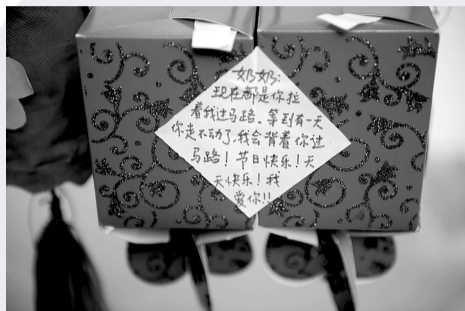 奶奶:
现在都是你拉
着我过马路。等到有一天
你走不动了,我会背着你过
马路!节日快乐!天
天快乐!我
爱你!!